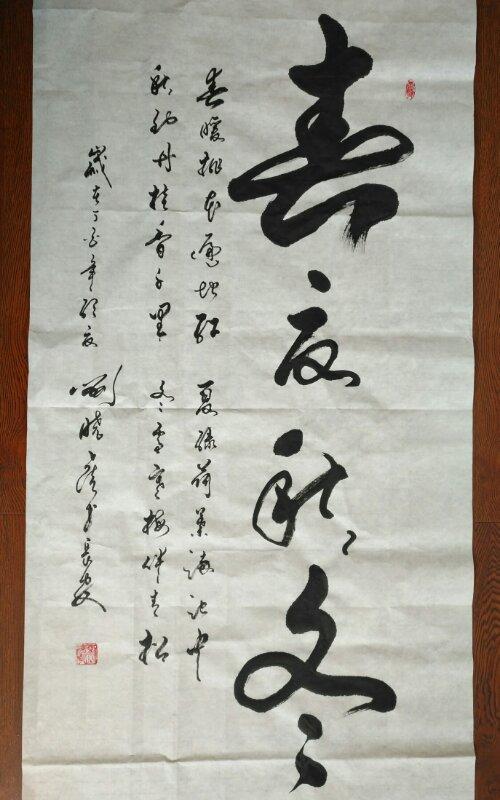 春夏秋冬
春暖桃花遍地红 夏绿荷葉满池中
秋到丹桂香千里 冬雪寒梅伴青松
歲在丁酉年初夏 劉晓于長安